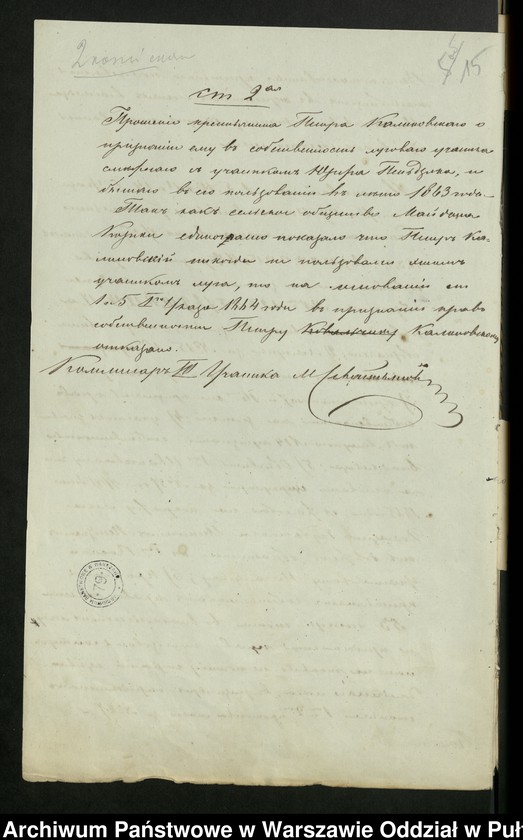 2 копейская
15
ст 2ая
Прошенiе крестьянина Петра Калиновскаго о
признанiи ему въ собственность луговаго участка
смежнаго съ участкомъ Юзефа и
бывшаго въ его пользованiи въ лето 1863 года.
Такъ какъ сельское общество Майдана
единогласно показало что Петръ Ка-
линовскiй никогда не пользовался этимъ
участкомъ луга, то на основанiи ст
1 и 5 Iго Указа 1864 года въ признанiи правъ
собственности Петру Калиновскому
отказано.
Коммисаръ III Участка М
79
Archiwum Państwowe w Warszawie Oddział w Puł